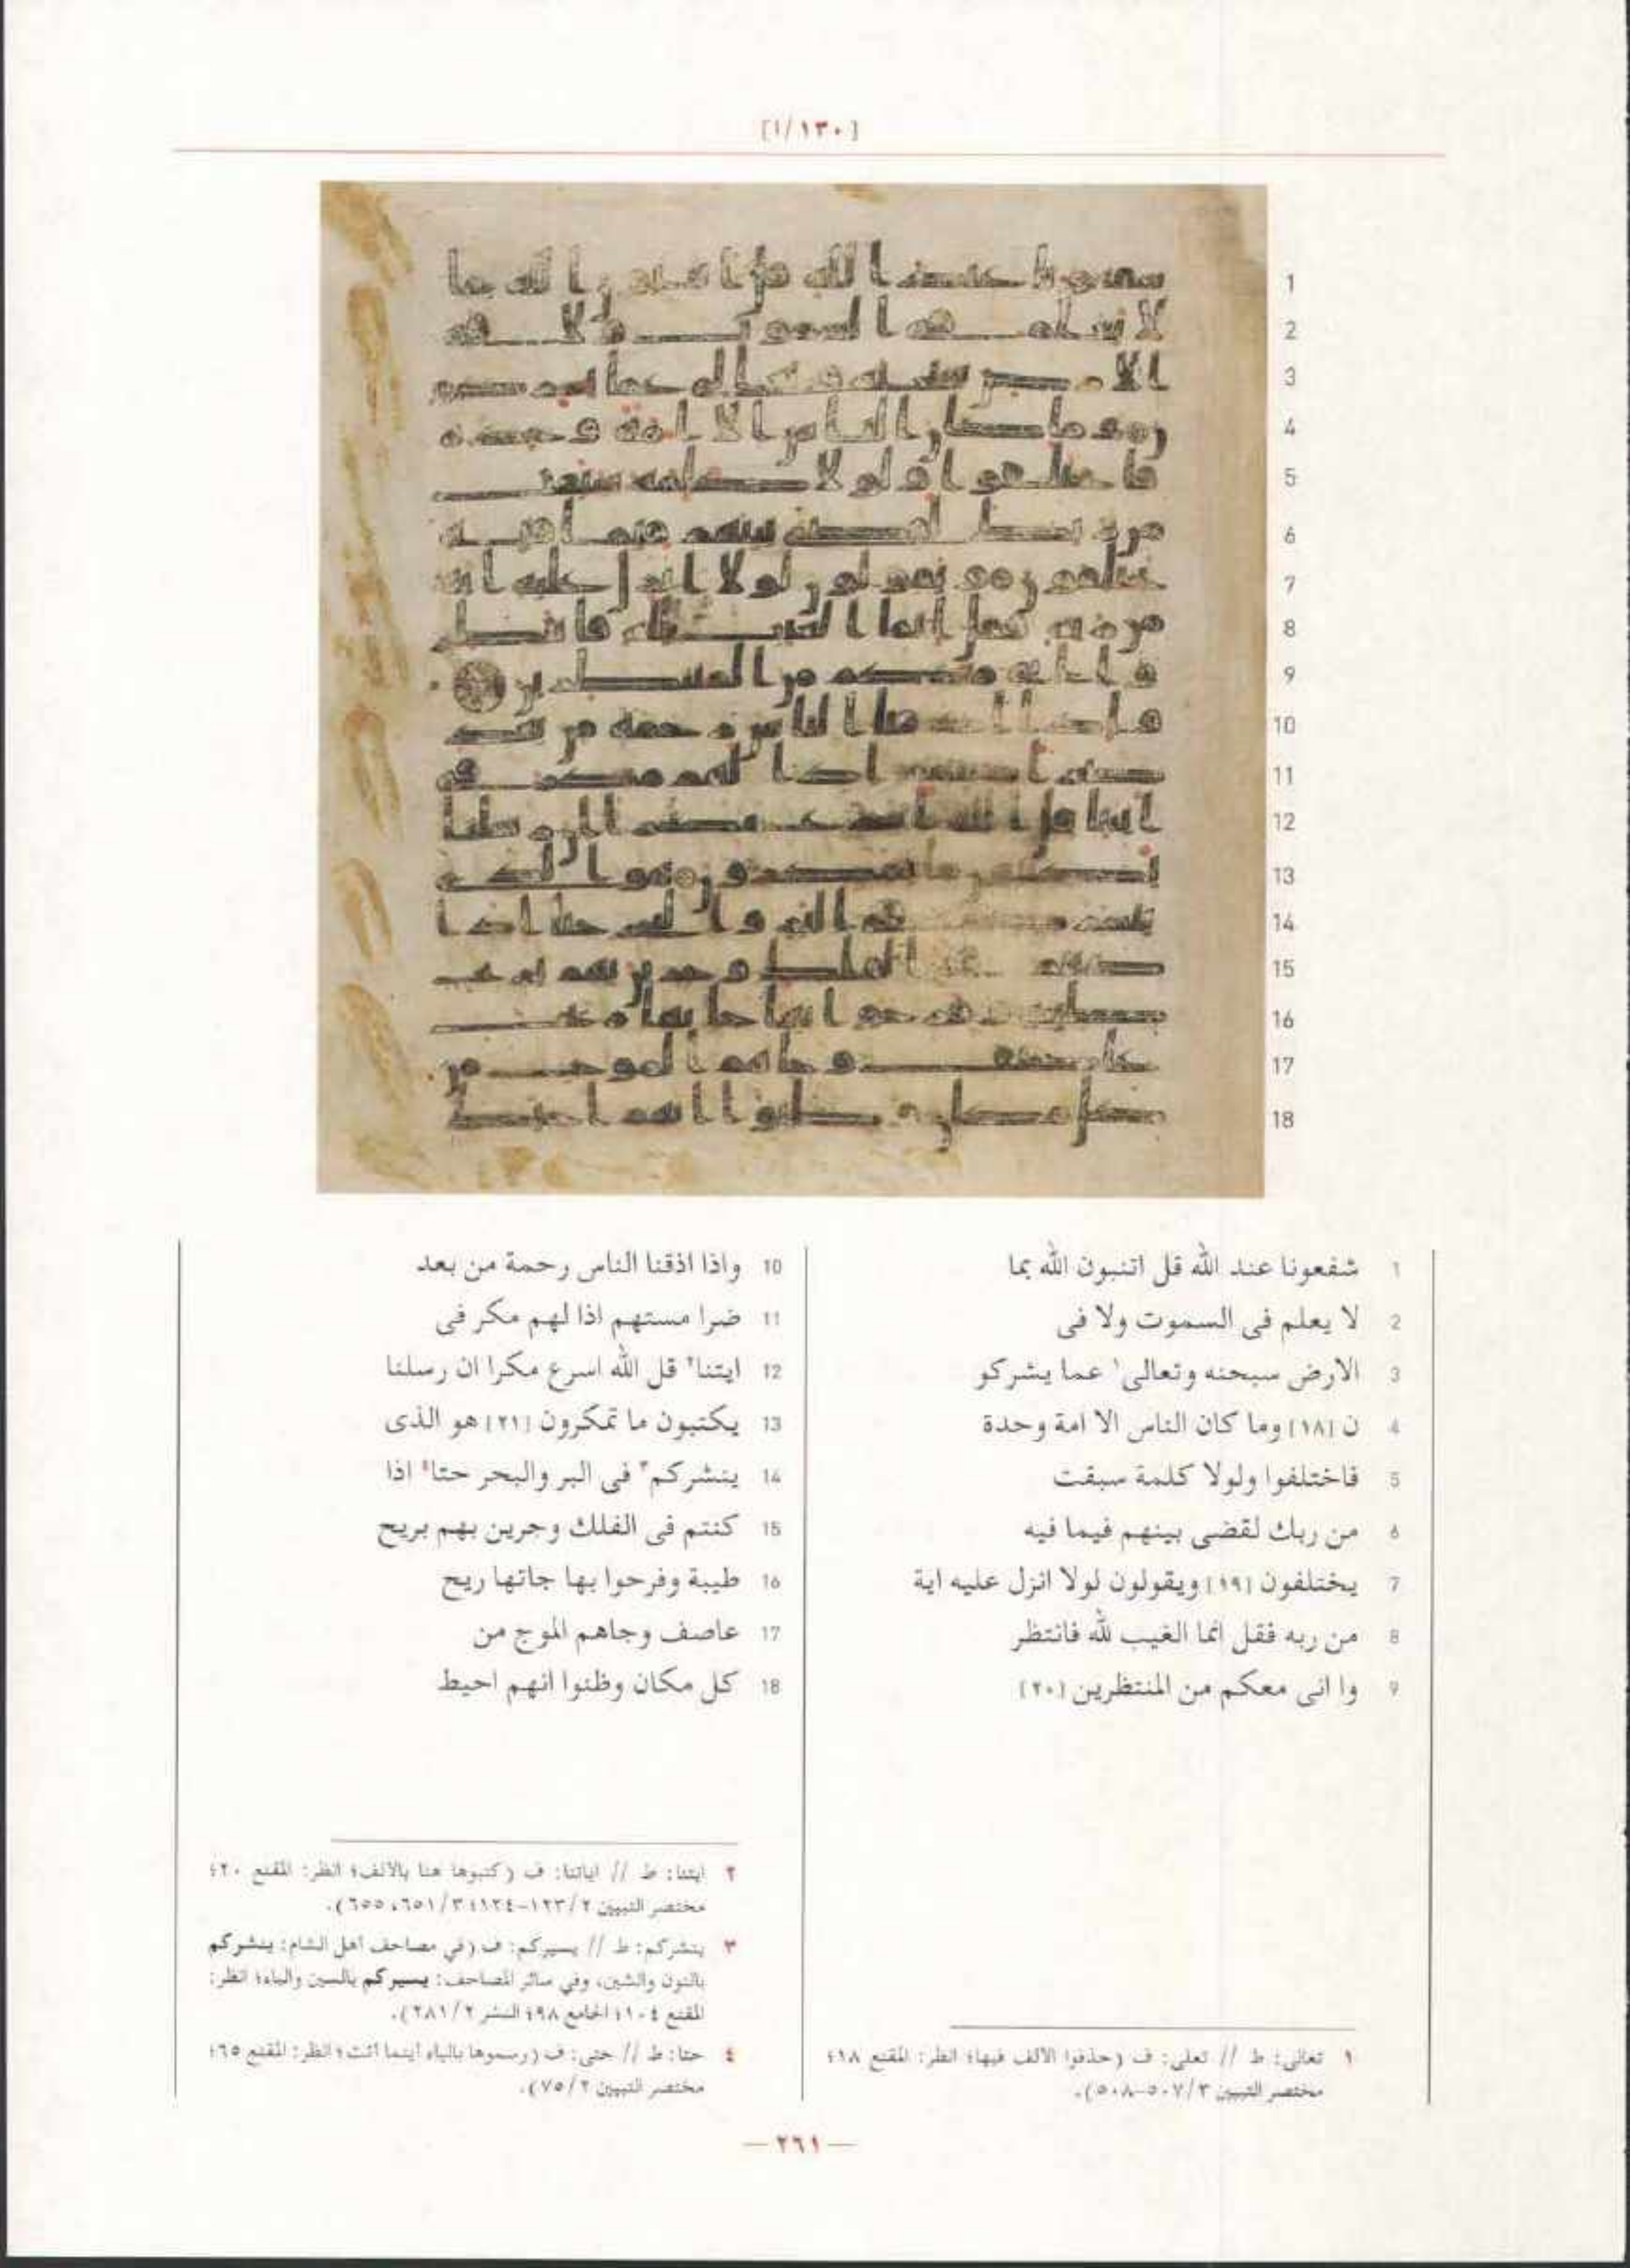 [١٣٠/ا]
1 شفعونا عند الله قل اتنبون الله بما
2 لا يعلم فى السموت ولا فى
3 الارض سبحنه وتعالى١ عما يشركو
4 ن [١٨] وما كان الناس الا امة وحدة
5 فاختلفوا ولولا كلمة سبقت
6 من ربك لقضى بينهم فيما فيه
7 يختلفون [١٩] ويقولون لولا انزل عليه اية
8 من ربه فقل انما الغيب لله فانتظر
9 وا انى معكم من المنتظرين [٢٠]
١ تعالى: ط // تعلى: ف (حذفوا الالف فيها؛ انظر: المقنع ١٨؛
مختصر التبيين ٣/ ٥٠٧-٥٠٨).
10 واذا اذقنا الناس رحمة من بعد
11 ضرا مستهم اذا لهم مكر فى
12 ايتنا٢ قل الله اسرع مكرا ان رسلنا
13 يكتبون ما تمكرون [٢١] هو الذى
14 ينشركم٣ فى البر والبحر حتا٤ اذا
15 كنتم فى الفلك وجرين بهم بريح
16 طيبة وفرحوا بها جاتها ريح
17 عاصف وجاهم الموج من
18 كل مكان وظنوا انهم احيط
٢ ايتنا: ط // اياتنا: ف (كتبوها هنا بالالف؛ انظر: المقنع ٢٠؛
مختصر التبيين ٢/ ١٢٣-١٢٤؛ ٣/ ٦٥١، ٦٥٥).
٣ ينشركم: ط // يسيركم: ف (في مصاحف اهل الشام: ينشركم
بالنون والشين، وفي سائر المصاحف: يسيركم بالسين والياء؛ انظر:
المقنع ١٠٤؛ الجامع ٩٨؛ النشر ٢/ ٢٨١).
٤ حتا: ط // حتى: ف (رسموها بالياء اينما اتت؛ انظر: المقنع ٦٥؛
مختصر التبيين ٢/ ٧٥).
— ٢٦١ —